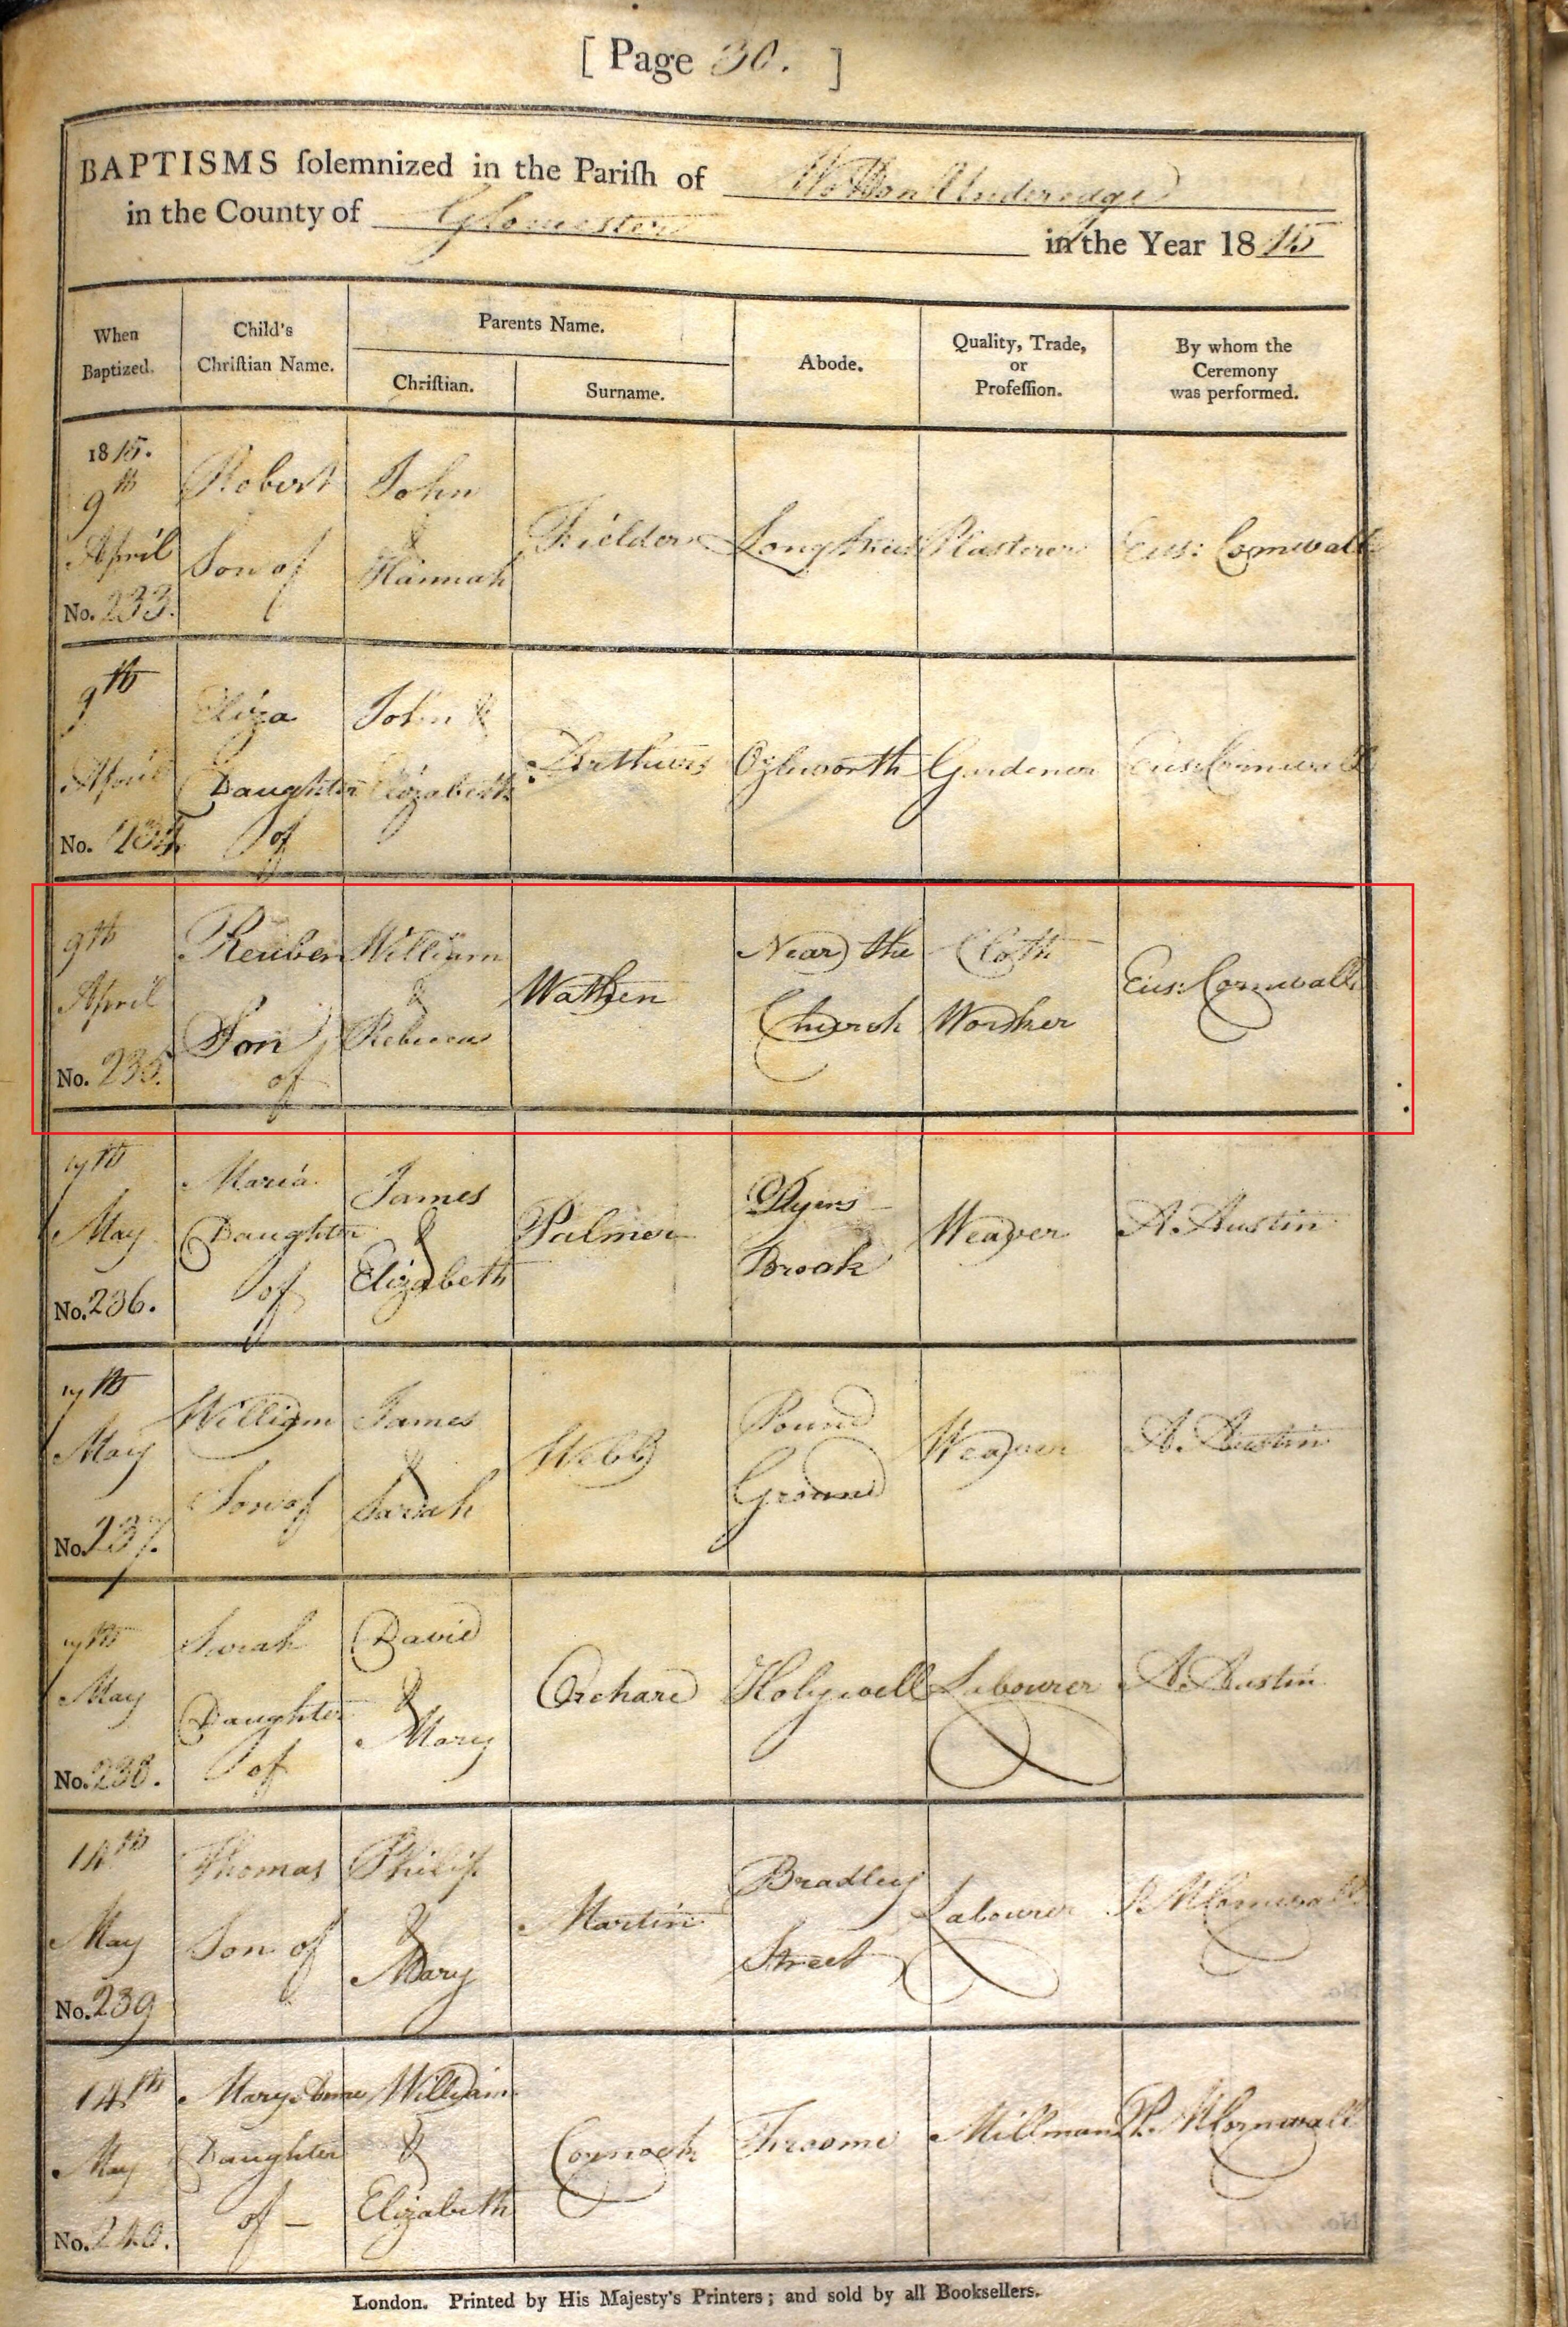 [ Page 30. ]
BAPTISMS ſolemnized in the Pariſh of Wotton Underedge
in the County of Gloucester in the Year 1815
When Baptized.
Child's Chriſtian Name.
Parents Name.
Chriſtian.
Surname.
Abode.
Quality, Trade, or Profeſſion.
By whom the Ceremony was performed.
1815.
9th
April
No. 233.
Robert
Son of
John
&
Hannah
Fielder
Plasterer
Eus: Cornwall
9th
April
No. 234.
Eliza
Daughter
of
John &
Elizabeth
Arthurs
Ozleworth
Gardener
Eus: Cornwall
9th
April
No. 235.
Reuben
Son
of
William
&
Rebecca
Wathen
Near the
Church
Cloth
Worker
Eus: Cornwall
7th
May
No. 236.
Maria
Daughter
of
James
&
Elizabeth
Palmer
Dyers
Brook
Weaver
A. Austin
7th
May
No. 237.
William
Son of
James
&
Sarah
Webb
Pound
Ground
Weaver
A. Austin
7th
May
No. 238.
Sarah
Daughter
of
David
&
Mary
Orchard
Holywell
Labourer
A. Austin
14th
May
No. 239
Thomas
Son of
Philip
&
Mary
Martin
Bradley
Street
Labourer
Cornwall
14th
May
No. 240.
Mary Anne
Daughter
of –
William
&
Elizabeth
Cornock
Millman
P. M Cornwall
London. Printed by His Majesty's Printers; and sold by all Booksellers.